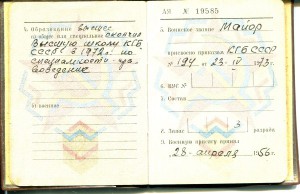 1. Образование высшее
скончил
Высшую школу КГБ
СССР в 1972 г. по
специальности
АЯ № 19585
5. Воинское звание Майор
присвоено приказом КГБ СССР
№ 194 от 23-IV 1973 г.
6. ВУС №
7. Состав
8. Запас 3 разряда
9. Военную присягу принял
28 - апреля 1956 г.